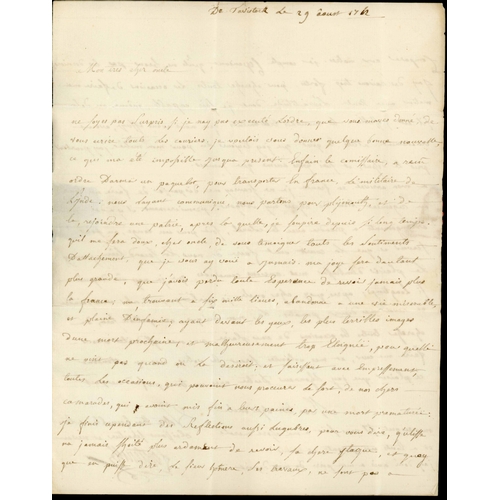 De Tavistock Le 29 aoust 1762
Mon très cher oncle
ne soyes pas surpris si je nay pas execute Lordre, que vous mavies donne, de
vous ecrire toute les couriers, je voulois vous donner quelque bonne nouvelle,
ce qui ma été impossible jusqua present. Enfain le comissaire, a recu
ordre Darmer un paquebot, pour transporter en france, Le militaire de
Linde: nous layant communique, nous partons pour plymouth, et de la
rejoindre une patrie, apres la quelle, je soupire depuis si long temps,
quil me sera doux, cher oncle, de vous temoigner touts les sentiments
Dattachement, que je vous ay voué a jamais. ma joye sera dautant
plus grande, que javois perdu toute esperance de revoir jamais plus
la france, me trouvant a six mille lieues, abandonné a une vie miserable,
et pleine Dinfamie; ayant devant les yeux, les plus terribles images
dune mort prochaine, et malheureusement trop Eloignée, pour quelle
ne vint pas quand on la desiroit, et saisissant avec Empressement
toutes les occasions, qui pouvoient nous procurer le sort, de nos chers
camarades, qui avoint mis fin a leurs peines, par une mort prematurée.
je finis cependant des Reflections aussi Lugubres, pour vous dire, quulisse
na jamais souhaité plus ardament de revoir, sa chere ithaque, et quoy
que en puisse dire, Le sieur homere, ses travaux, ne sont pas a